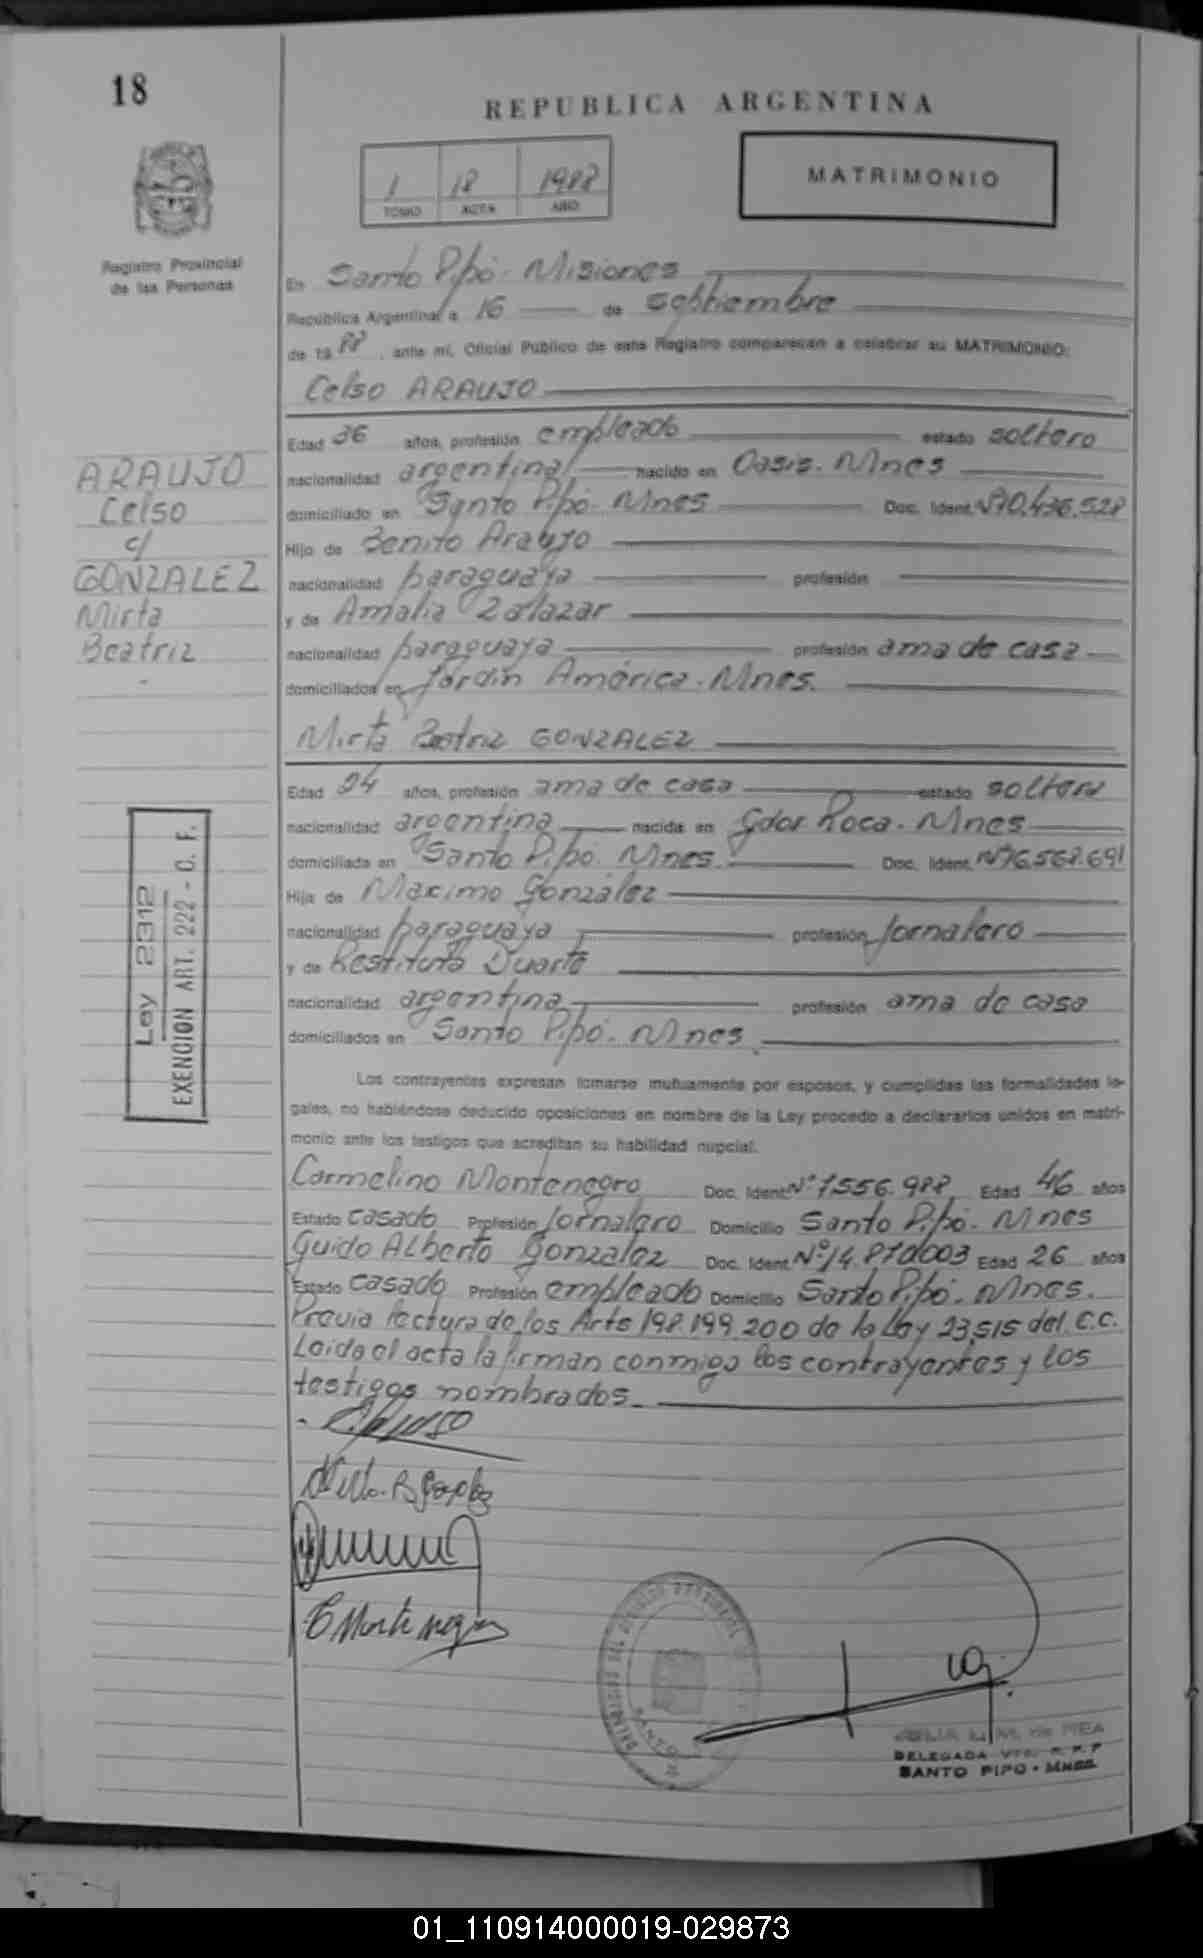 18
REPUBLICA ARGENTINA
1 18 1988
TOMO ACTA AÑO
MATRIMONIO
Registro Provincial
de las Personas
En Santo Pipó. Misiones
República Argentina, a 16 de septiembre
de 19 88, ante mí, Oficial Público de este Registro comparecen a celebrar su MATRIMONIO:
Celso ARAUJO
Edad 36 años, profesión empleado estado soltero
nacionalidad argentina nacido en Oasis. Mnes
domiciliado en Santo Pipó. Mnes Doc. Ident. Nº10.436.528
Hijo de Benito Araujo
nacionalidad paraguaya profesión
y de Amalia Zalazar
nacionalidad paraguaya profesión ama de casa
domiciliados en Jardín América. Mnes.
ARAUJO
Celso
c/
GONZALEZ
Mirta
Beatriz
Mirta Beatriz GONZALEZ
Edad 24 años, profesión ama de casa estado soltera
nacionalidad argentina nacida en Gdor Roca. Mnes
domiciliada en Santo Pipó. Mnes. Doc. Ident. Nº16.568.691
Hija de Maximo González
nacionalidad paraguaya profesión jornalero
y de Restituta Duarte
nacionalidad argentina profesión ama de casa
domiciliados en Santo Pipó. Mnes
Ley 2312
EXENCION ART. 222 - C. F.
Los contrayentes expresan tomarse mutuamente por esposos, y cumplidas las formalidades le-
gales, no habiéndose deducido oposiciones en nombre de la Ley procedo a declararlos unidos en matri-
monio ante los testigos que acreditan su habilidad nupcial.
Carmelino Montenegro Doc. Ident. Nº 7.556.988 Edad 46 años
Estado casado Profesión jornalero Domicilio Santo Pipó. Mnes
Guido Alberto Gonzalez Doc. Ident. Nº14.870.003 Edad 26 años
Estado casado Profesión empleado Domicilio Santo Pipó. Mnes.
Previa lectura de los Arts 198.199.200 de la Ley 23.515 del C.C.
Leida el acta la firman conmigo los contrayentes y los
testigos nombrados.
Mirta B Gonzalez
C Montenegro
JULIA L. M. de REA
DELEGADA
SANTO PIPO - MNES
01_110914000019-029873